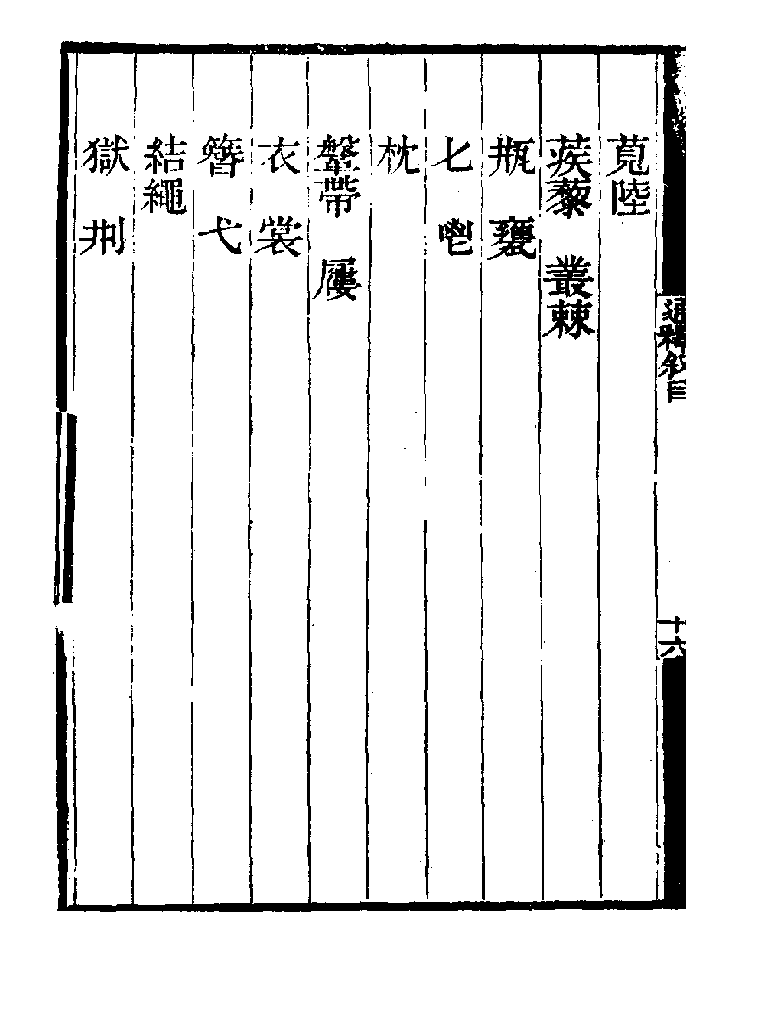 莧陸
蒺黎　叢棘
瓶　甕
匕　鬯
枕
鞶帶　屨
衣　裳
簪　弋
結繩
獄　㓝
通釋敘目
十六